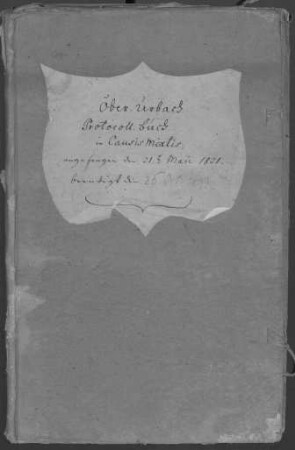 Ober. Urbach
Protocoll. buch
in Causis Mixtis.
angefangen den 21 t Maii 1821.
beendigt den 26